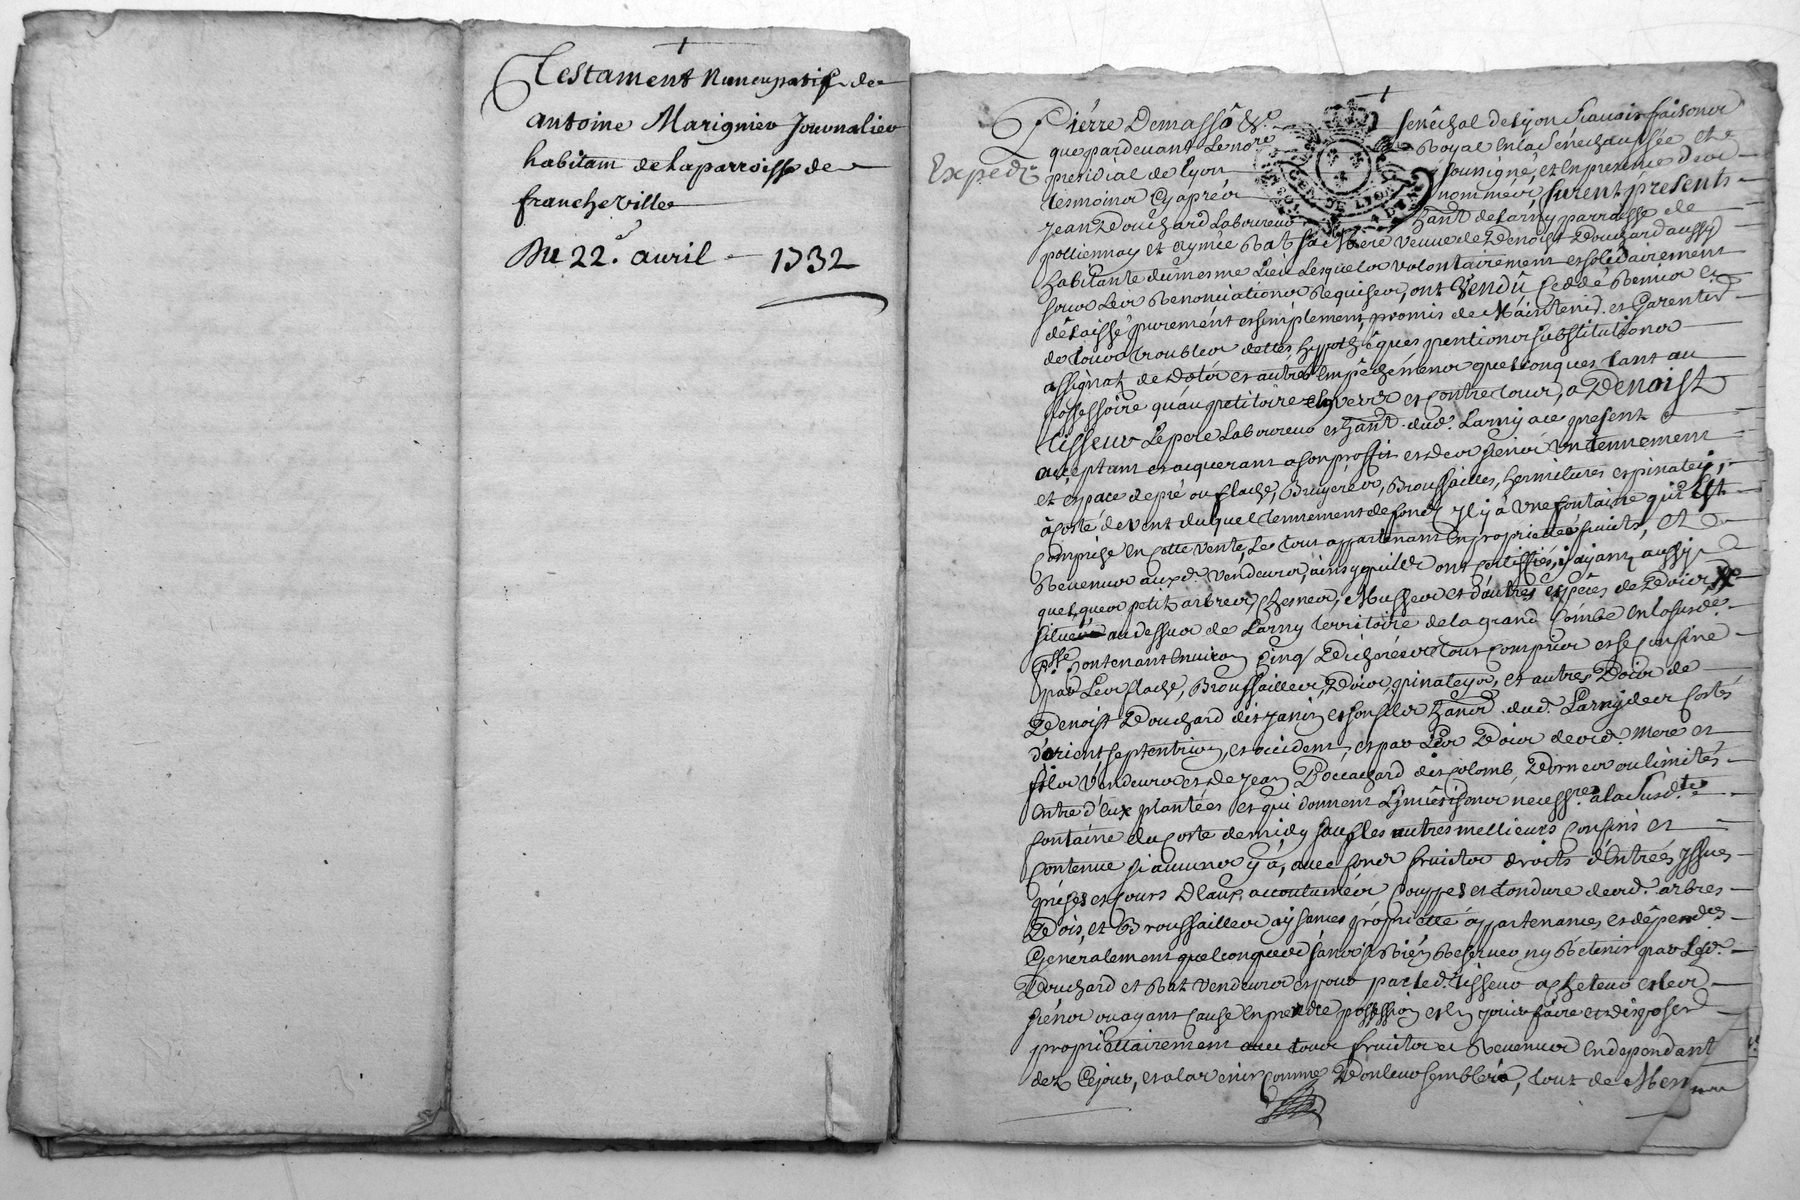 Testament Nuncupatif de
antoine Marignier Journalier
habitant de la parroisse de
francheville
Du 22e. avril 1732
Expedié
Pierre Demasso &c. senéchal de Lyon scavoir faisons
que pardevant Le nore Royal en la senéchaussée et
presidial de Lyon soussigné, et en presence des
tesmoins cy aprés nommés, furent présents
Jean Bouchard Laboureur hant de Larny parroisse de
polliennay et aymée Rat sa Mere veuve de Benoist Bouchard aussy
habitante du mesme Lieu Lesquels volontairement et solidairement
sous Les Renonciations Requises, ont Vendû Ceddé Remis et
délaissé purement et simplement, promis de Maintenir et Garentir
de tous troubles dettes hypothéques pentions substitutions
assignat de dots et autres empéchemens quelconques tant au
possessoire qu'au petitoire envers et contre tous, a Benoist
Tisseur Le pere Laboureur et hant. dud. Larny ace present
acceptant et acquerant a son proffit et des siens Un tennement
et espace de pré ou flache, Bruyéres, Broussailles, hermitures et pinateys,
à costé de vent duquel tennement de fonds il y à une fontaine qui Est
comprise en cette vente, Le tout appartenant en proprieté fruits, et
Revenus auxd. vendeurs, ainsy qu'ils ont certiffiés, y ayant aussy
quelques petits arbres, chesnes, et d'autres espéces de Bois,
situé au dessus de Larny territoire de la grand Combe en la susde.
psse contenant environ Cinq Bicherées le tout compris et se confine
par Les flache, Broussailles, Bois, pinateys, et autres Bois de
Benoist Bouchard dit Janin et son fils hants. dud. Larny des costés
d'orient septentrion, et occident, et par Les Bois desd. Mere et
fils Vendeurs et de Jean Bouchard dit Colomb, Bornes ou limités
entre d'eux plantées et qui donnent neccssres. à la susd.te
fontaine du costé de midy sauf les autres mellieurs Confins et
Contenue si aucuns y à, avec fonds fruicts droits d'Entrées yssues
prises et cours d'eaux accoutumées Couppes et tondure desd. arbres
Bois, et Broussailles aysances proprietté appartenances et dépendces.
Generalement quelconques sans Rién Reserver ny Retenir par Lesd.
Bouchard et Rat vendeurs et pour par led. Tisseur achetteur et les
siéns ou ayant Cause en prendre possession et en jouir faire et disposer
propriettairement avec tous fruicts et Revenus en dependant
dez Cejour, et à l'avenir comme Bon leur semblera, tout de Mesme